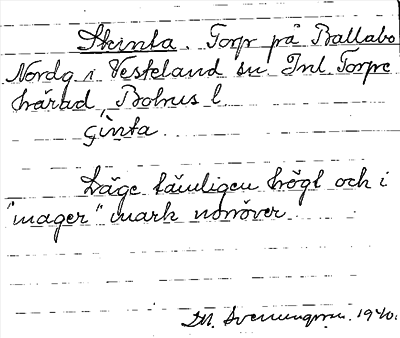 Skinta. Torp på Ballabo
Nordg i Vesteland su Inl. Torpe
härad, Bohus l.
Läge tämligen högt och i
"mager" mark norröver
D.H. 1940.